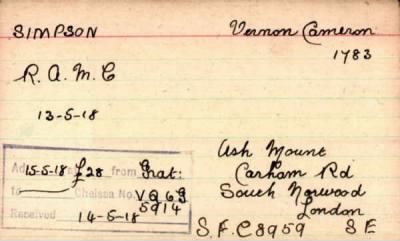 SIMPSON
Vernon Cameron
1783
R.A.M.C
13-5-18
15-5-18 £28 from Grat:
to Chelsea No.
5914
Received 14-5-18
Ash Mount
Carham Rd
South Norwood
London
S.F.C 8959 S E